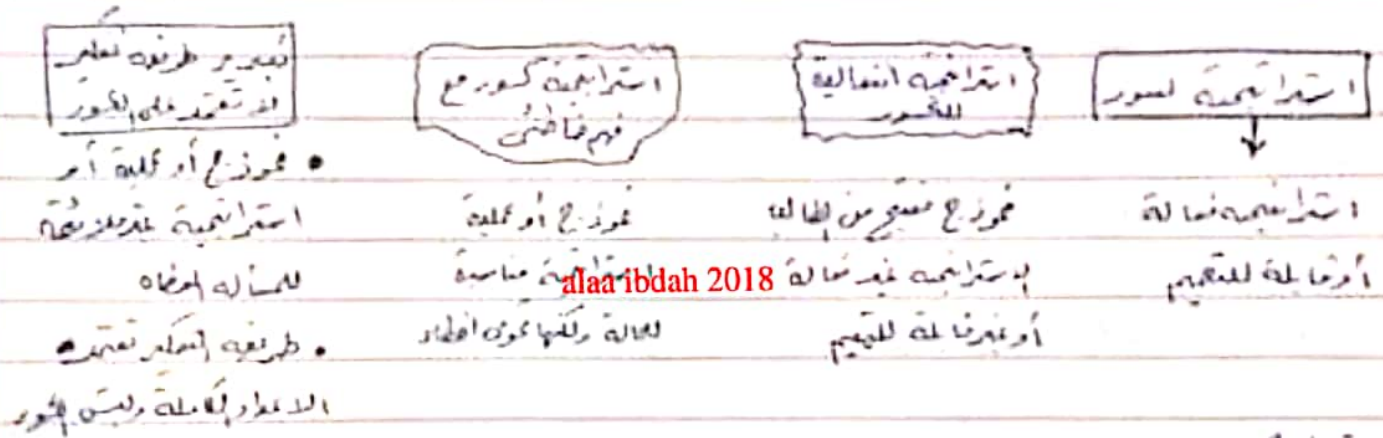 استراتيجية كسور
استراتيجية فعالة
أو قابلة للتعميم
استراتيجية انفعالية
للكسور
نموذج منتج من الطالب
الاستراتيجية غير فعالة
أو غير قابلة للتعميم
استراتيجية كسور مع
فهم خاطئ
نموذج أو عملية
مناسبة
للحالة ولكنها تحوي أخطاء
alaa ibdah 2018
طريقة تفكير
لا تعتمد على الكسور
• نموذج أو عملية أو
استراتيجية غير ملائمة
للمسألة المعطاه
• طريقة التفكير تعتمد
الاعداد الكاملة وليس الكسور